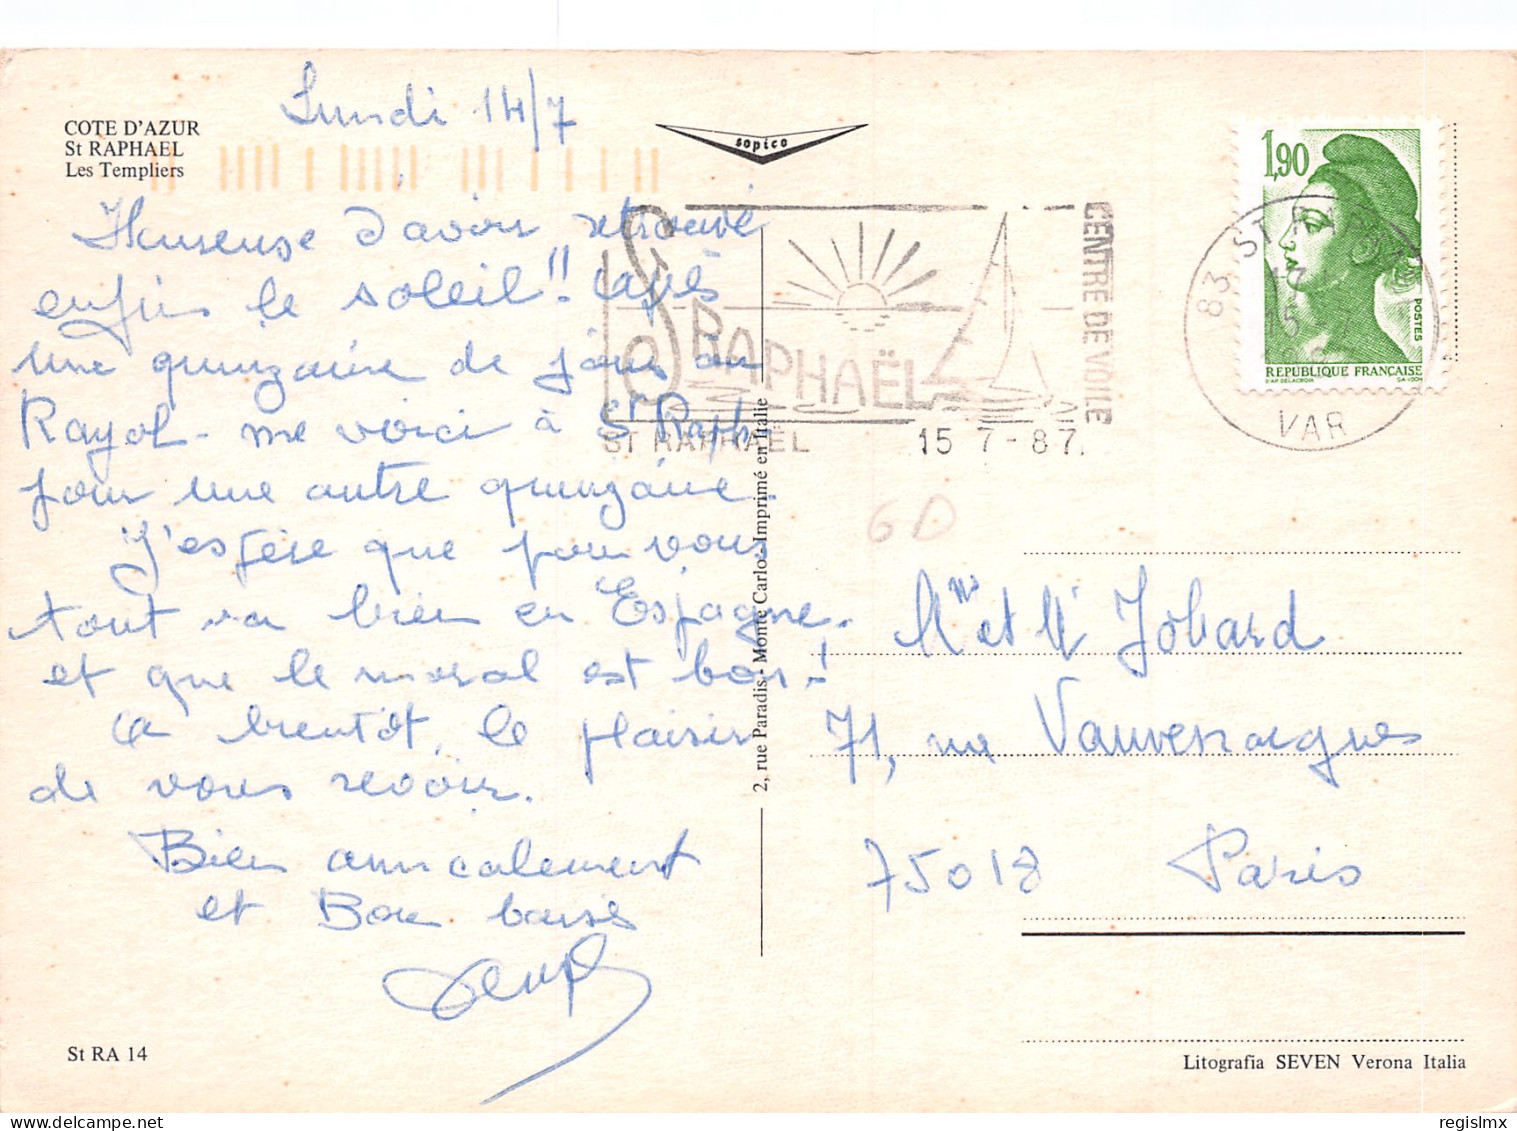 Lundi 14/7
COTE D'AZUR
St RAPHAEL
Les Templiers
Heureuse d'avoir retrouvé
enfin le soleil!! après
une quinzaine de jours au
Rayol - me voici à St Raph
pour une autre quinzaine.
J'espère que pour vous
tout va bien en Espagne.
et que le moral est bon!
à bientôt, le plaisir
de vous revoir.
Bien amicalement
et Bon baisé
St RA 14
sopico
2, rue Paradis - Monte Carlo - Imprimé en Italie
St RAPHAËL
CENTRE DE VOILE
ST RAPHAEL 15 7-87.
1,90
POSTES
REPUBLIQUE FRANÇAISE
D'AP. DELACROIX
GANDON
83 ST RAPHAEL
15 - 7
VAR
6D
Mme et Mr Jobard
71, rue Vauvenargues
75018 Paris
Litografia SEVEN Verona Italia
regislmx